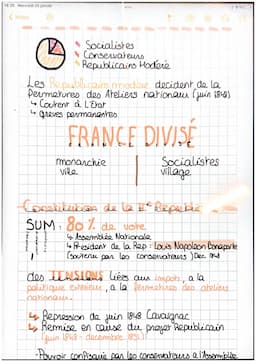 Socialistes
Conservateurs
Républicains Modéré
Les Républicains modérés décident de la
fermetures des Ateliers nationaux (juin 1848)
↳ Coutent à l'Etat
↳ grèves permanentes
FRANCE DIVISÉ
monarchie
ville
Socialistes
village
Constitution de la IIe République
SUM : 80% de vote
↳ Assemblée Nationale
↳ Président de la Rep : Louis Napoléon Bonaparte
(soutenu par les conservateurs) Dec 1848
des TENSIONS liées aux impots, à la
politique extérieure, à la fermetures des ateliers
nationaux.
↳ Repression de juin 1848 Cavaignac
↳ Remise en cause du projet Republicain
(juin 1848 - decembre 1851)
Pouvoir confisqué par les conservateurs à l'Assemblée